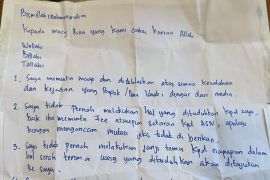 Bismillahirrahmanirrahim
Kepada warga Bima yang kami cintai karena Allah
Wallahi
Billahi
Tallahi
1. Saya meminta maaf dan diikhlaskan atas semua kesalahan
dan kejadian yang Bapak/Ibu lihat dengar dari media.
2. Saya tidak pernah melakukan hal yang dituduhkan kpd saya.
baik itu meminta Fee ataupun setoran kpd ASN apalagi
dengan mengancam mutasi jika tidak di berikan.
3. Saya tidak pernah melakukan janji temu kpd siapapun dalam
hal serah terima uang yang dituduhkan akan ditujukan
ke saya.